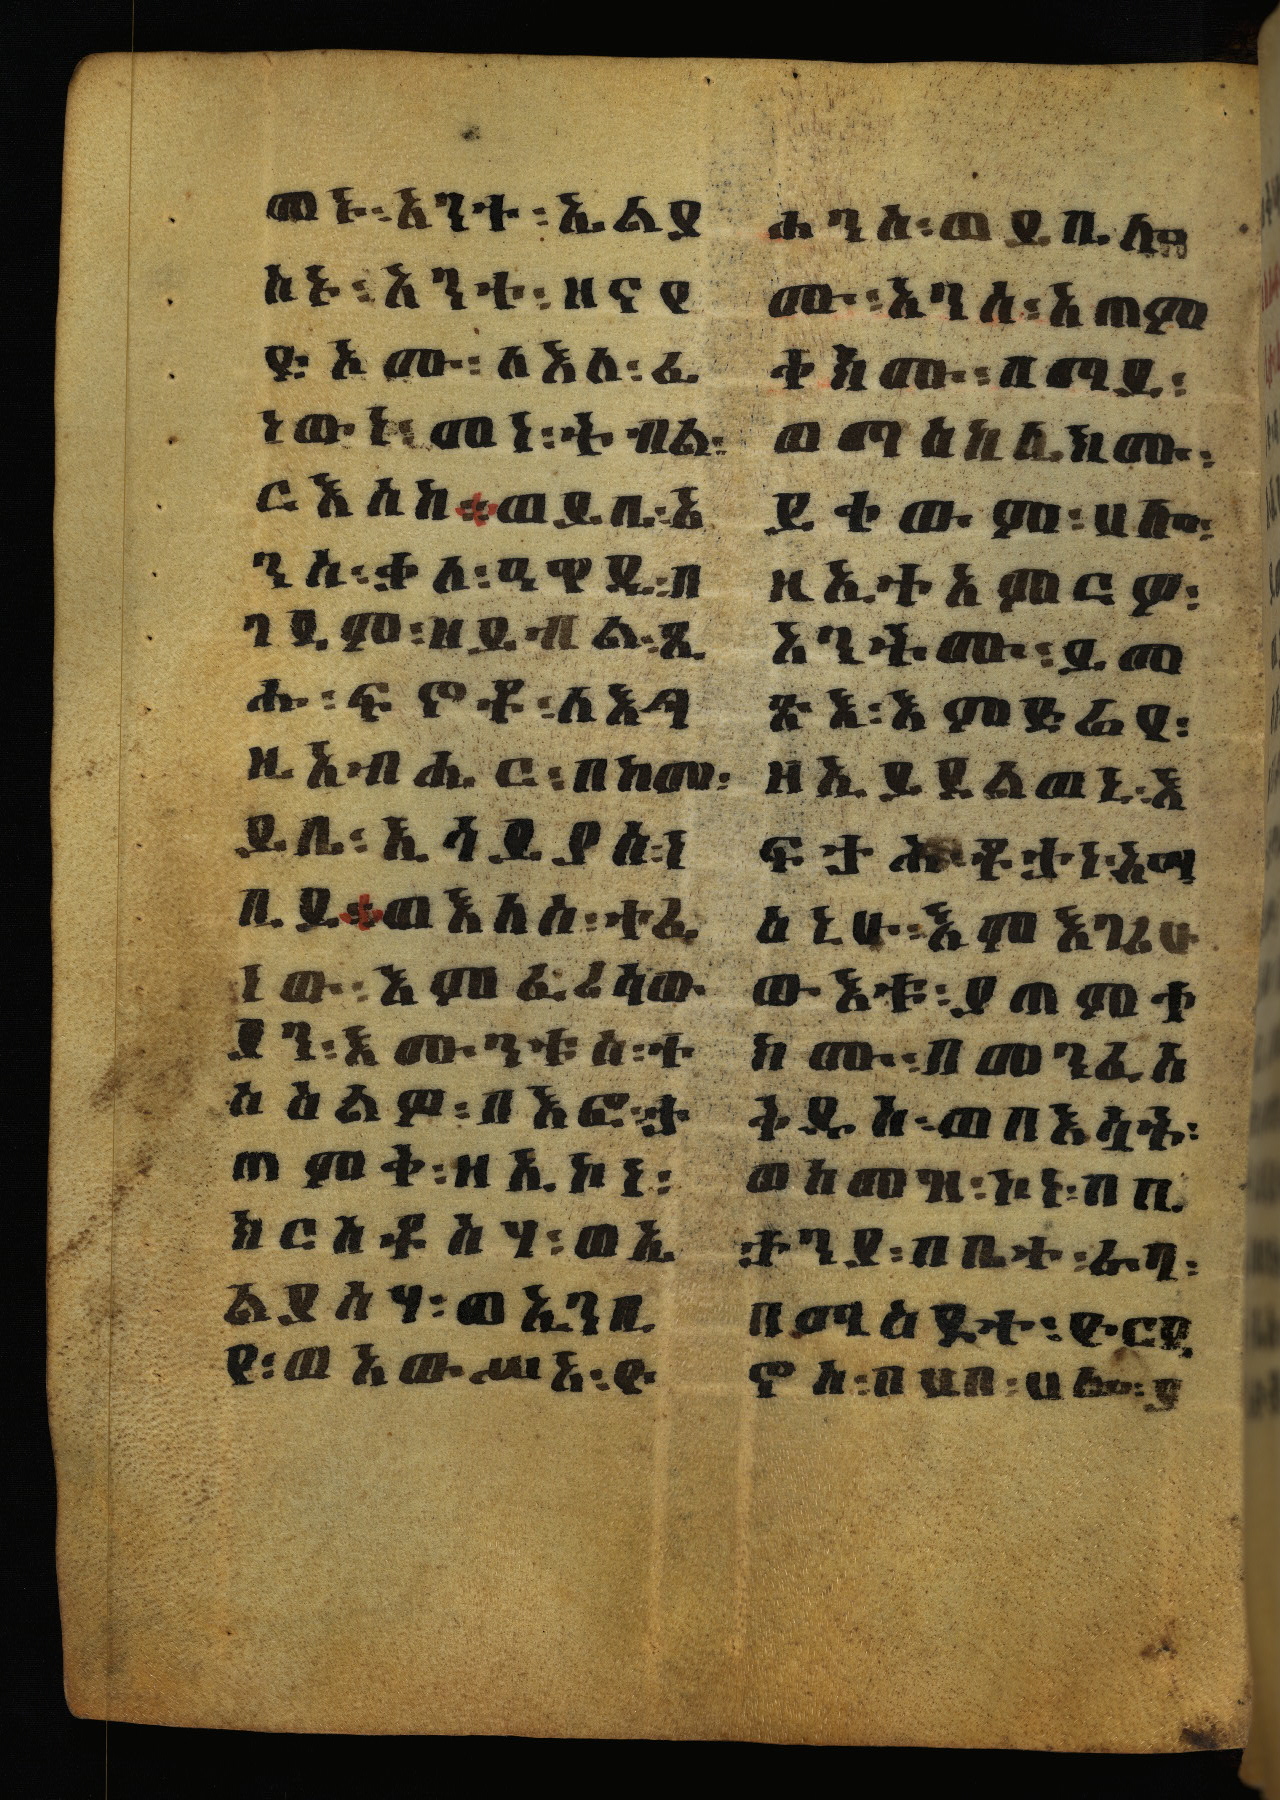 ወኑ፡አንተ፡ኢልያ
ስኑ፡አንተ፡ዘናዩ
ዶ፡እሙ፡ለእለ፡ፈ
ነውነ፡መነ፡ትብል፡
ርእሰከ፡ወይቤ፡አ
ንሰ፡ቃለ፡ዓዋዲ፡በ
ገዳም፡ዘይብል፡ጺ
ሑ፡ፍኖቶ፡ለእግ
ዚአብሔር፡በከመ፡
ይቤ፡ኢሳይያስ፡ነ
ቢይ፡ወእለሰ፡ተፈ
ነው፡እምፈሪሳው
ያን፡እሙንቱ፡ሰ፡ተ
ስእልዎ፡በእፎ፡ታ
ጠምቅ፡ዘኢኮነ፡
ክርስቶስሃ፡ወኢ
ልያስሃ፡ወኢንቢ
የ፡ወአውሥአ፡ዮ
ሐንስ፡ወይቤሎ
ሙ፡አንሰ፡አጠም
ቀክሙ፡በማይ፡
ወማእከሌክሙ፡
ይቀውም፡ሀሎ፡
ዘኢተአምርዎ፡
አንትሙ፡ይመ
ጽእ፡እምድሬየ፡
ዘኢይደልወኒ፡እ
ፍታሕ፡ቶታነ፡አሣ
እኒሁ፡እምእገሪሁ
ውእቱ፡ያጠምቀ
ክሙ፡በመንፈስ
ቅዱስ፡ወበእሳት፡
ወከመዝ፡ኮነ፡በቢ
ታንያ፡በቤተ፡ራባ፡
በማዕዶተ፡ዮርዳ
ኖስ፡በኀበ፡ሀሎ፡ዮ